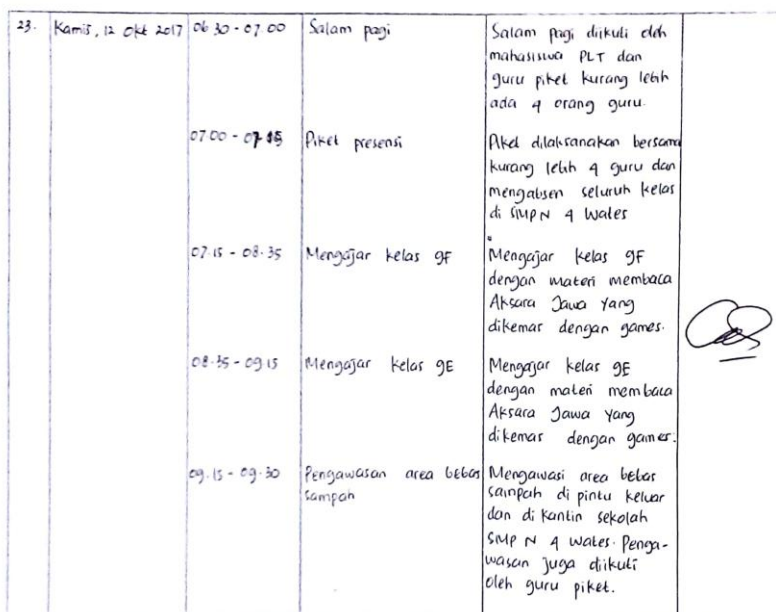 23. Kamis, 12 Okt 2017 06.30 - 07.00 Salam pagi Salam pagi diikuti oleh
mahasiswa PLT dan
guru piket kurang lebih
ada 4 orang guru.
07.00 - 07.15 Piket presensi Piket dilaksanakan bersama
kurang lebih 4 guru dan
mengabsen seluruh kelas
di SMP N 4 Wates
07.15 - 08.35 Mengajar kelas 9F Mengajar kelas 9F
dengan materi membaca
Aksara Jawa yang
dikemas dengan games.
08.35 - 09.15 Mengajar kelas 9E Mengajar kelas 9E
dengan materi membaca
Aksara Jawa yang
dikemas dengan games.
09.15 - 09.30 Pengawasan area bebas Mengawasi area bebas
sampah sampah di pintu keluar
dan di kantin sekolah
SMP N 4 Wates. Penga-
wasan juga diikuti
oleh guru piket.